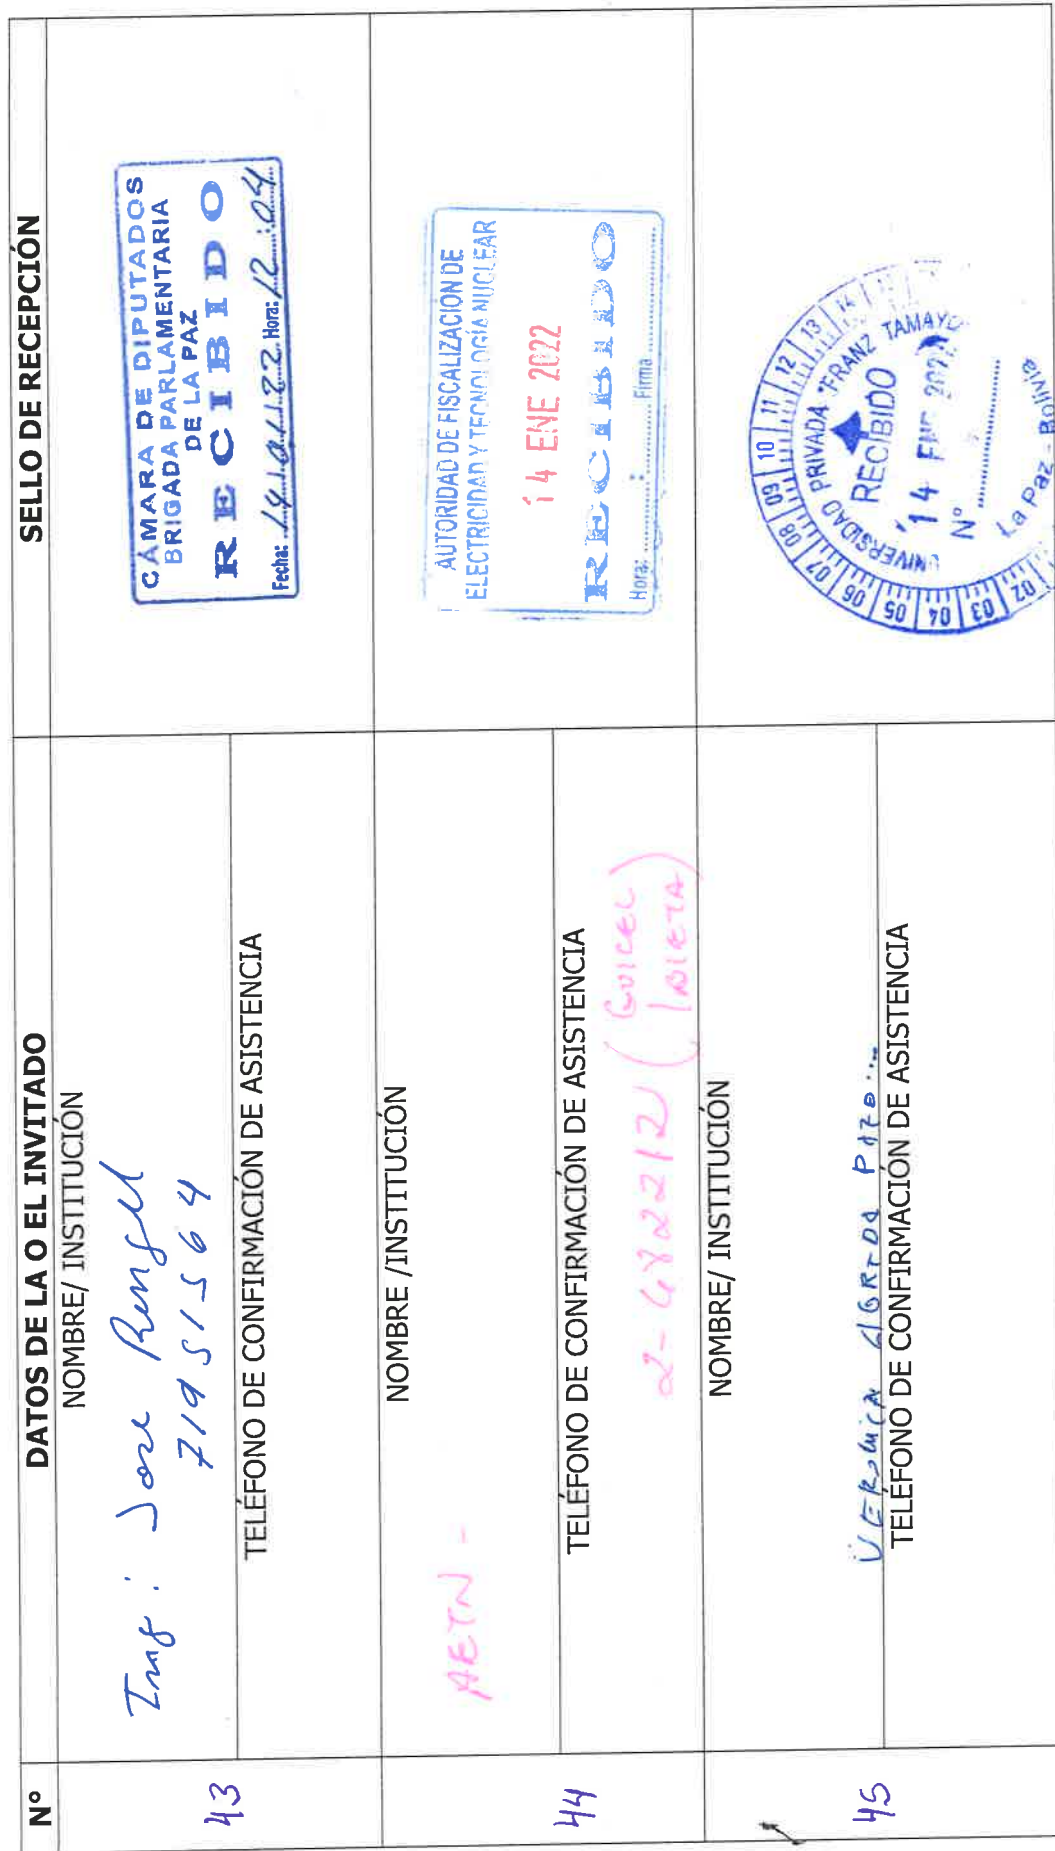 Nº
DATOS DE LA O EL INVITADO
SELLO DE RECEPCIÓN
43
NOMBRE/ INSTITUCIÓN
Ing: Jose Rengel
71951564
TELÉFONO DE CONFIRMACIÓN DE ASISTENCIA
CÁMARA DE DIPUTADOS
BRIGADA PARLAMENTARIA
DE LA PAZ
RECIBIDO
Fecha: 14/01/22 Hora: 12:04
44
NOMBRE /INSTITUCIÓN
AETN -
TELÉFONO DE CONFIRMACIÓN DE ASISTENCIA
AUTORIDAD DE FISCALIZACIÓN DE
ELECTRICIDAD Y TECNOLOGÍA NUCLEAR
14 ENE 2022
RECIBIDO
Hora: ........ : ........ Firma ........
45
NOMBRE/ INSTITUCIÓN
TELÉFONO DE CONFIRMACIÓN DE ASISTENCIA
02 03 04 05 06 07 08 09 10 11 12 13 14
UNIVERSIDAD PRIVADA "FRANZ TAMAYO
RECIBIDO
14 ENE
Nº ................
La Paz - Bolivia